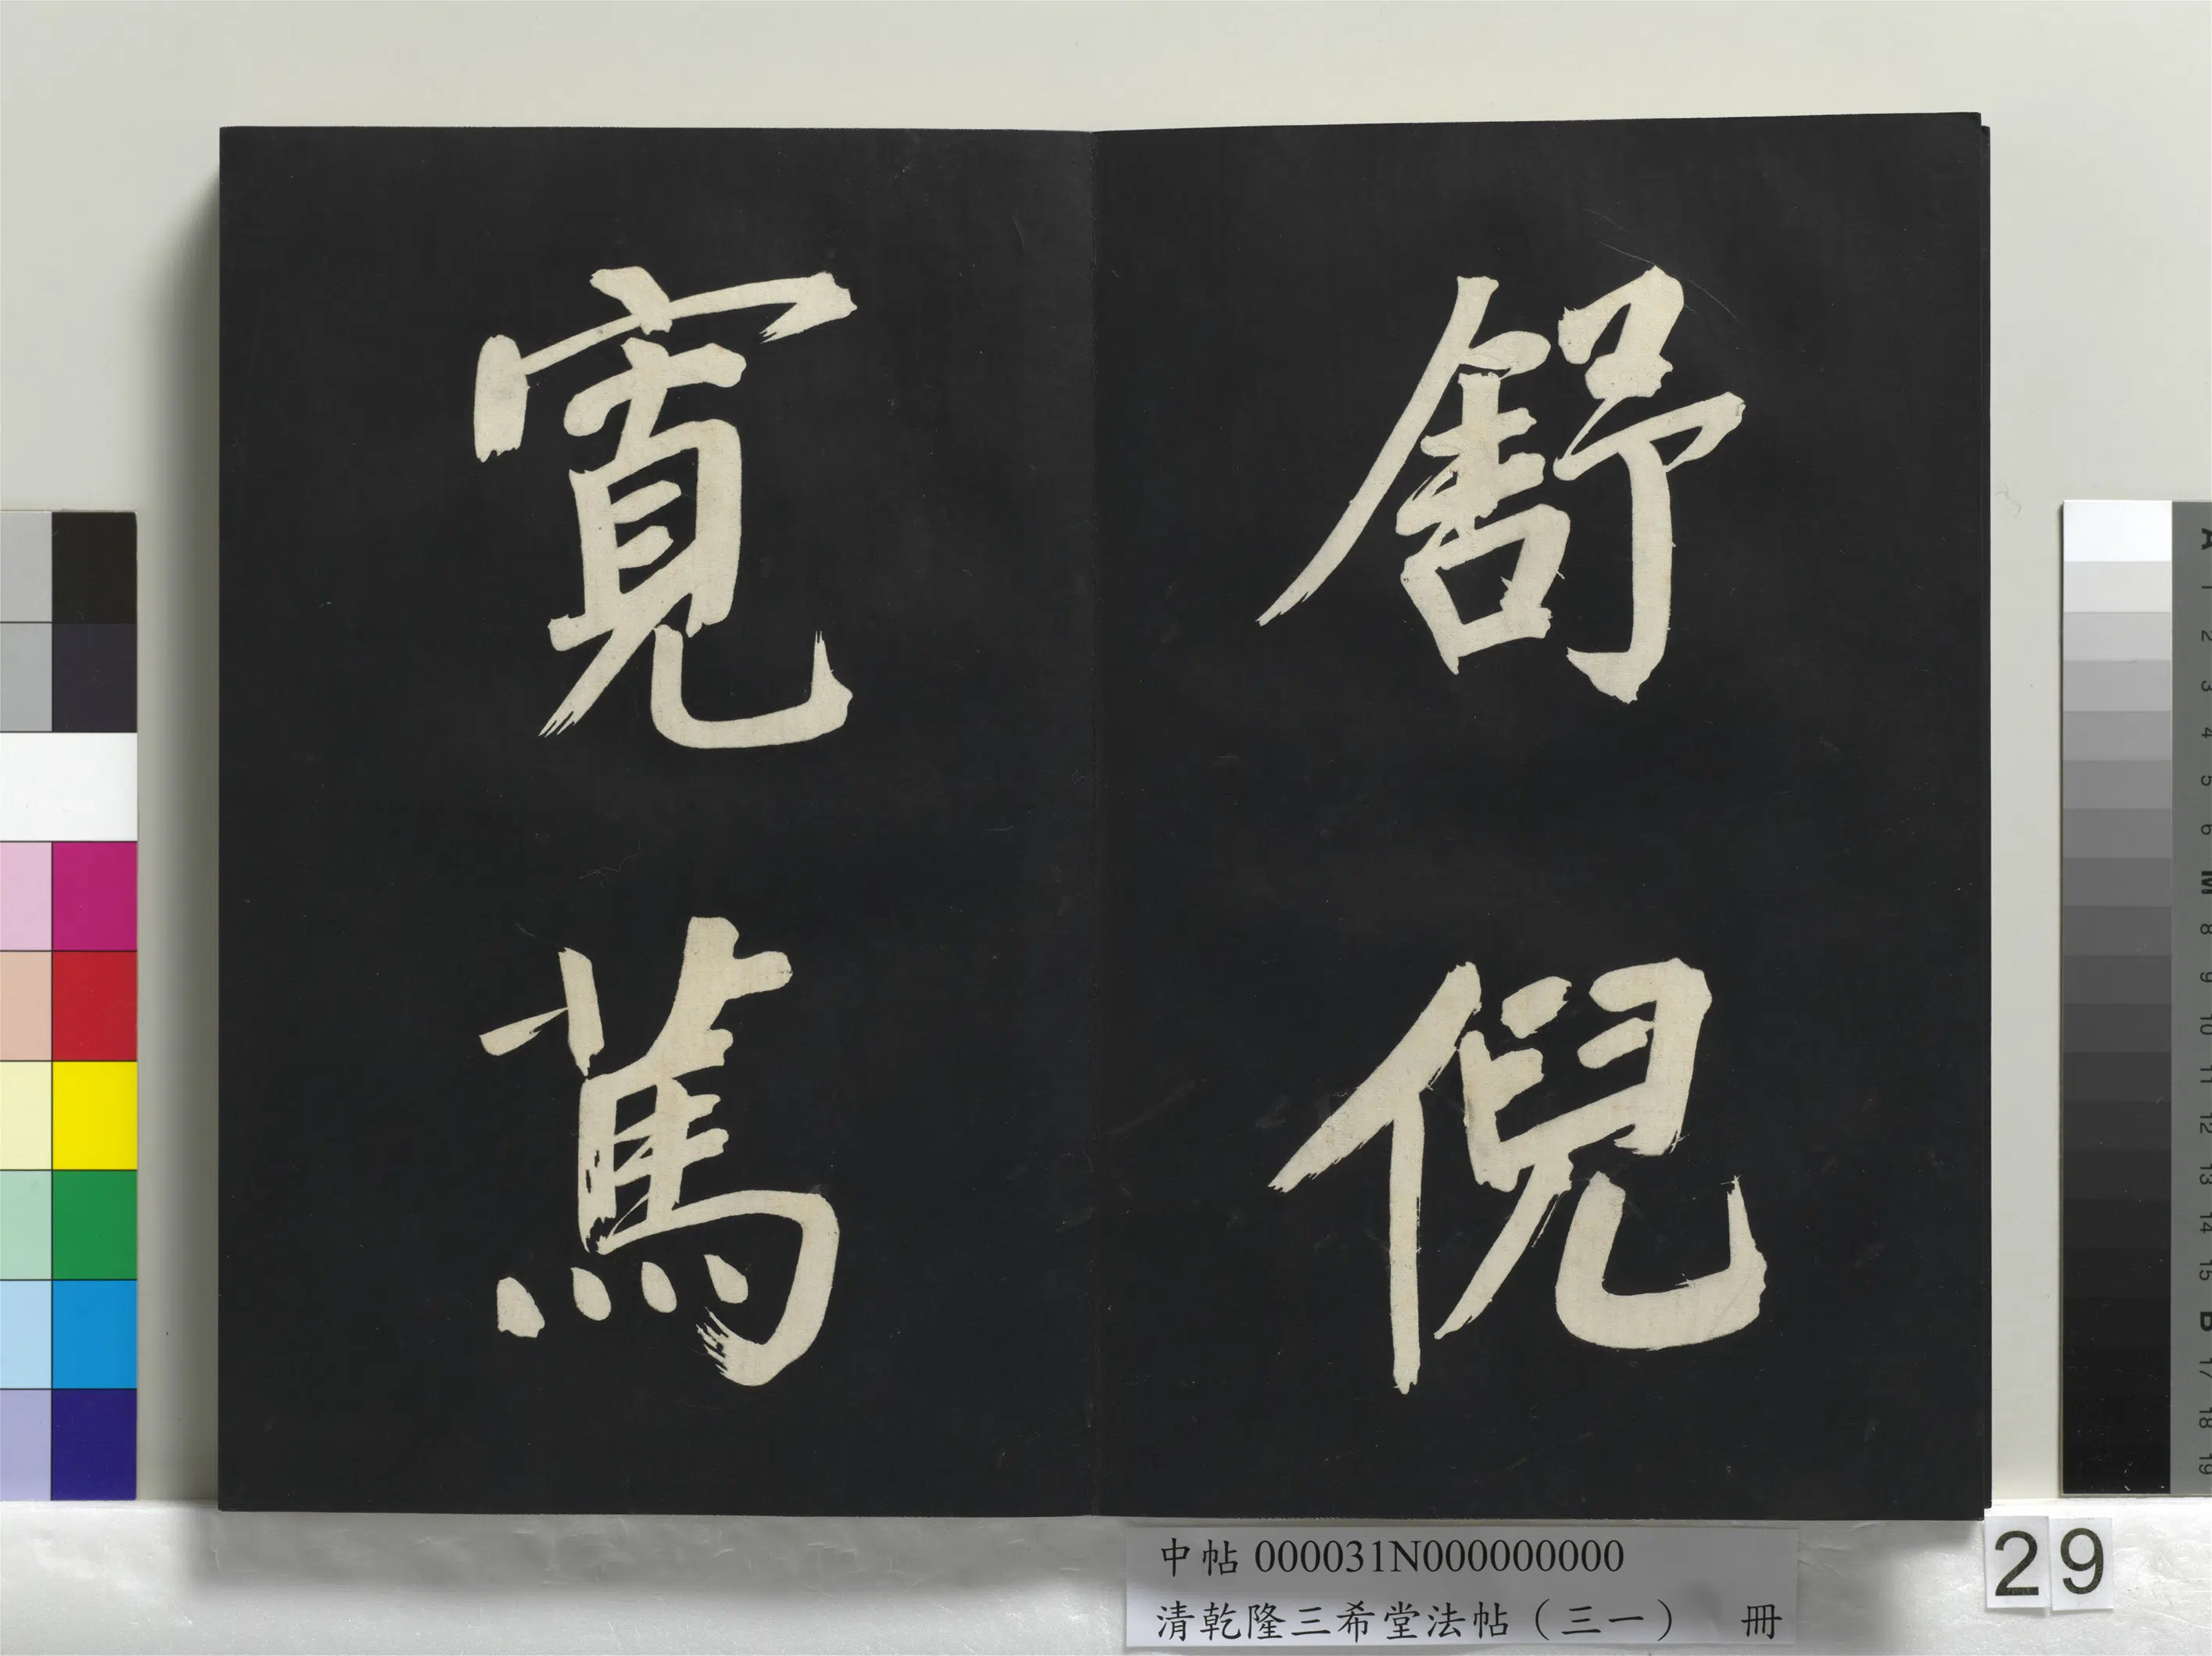 舒倪
寬篤
中帖 000031N000000000
清乾隆三希堂法帖（三一） 冊
29
A 1 2 3 4 5 6 M 8 9 10 11 12 13 14 15 B 17 18 19